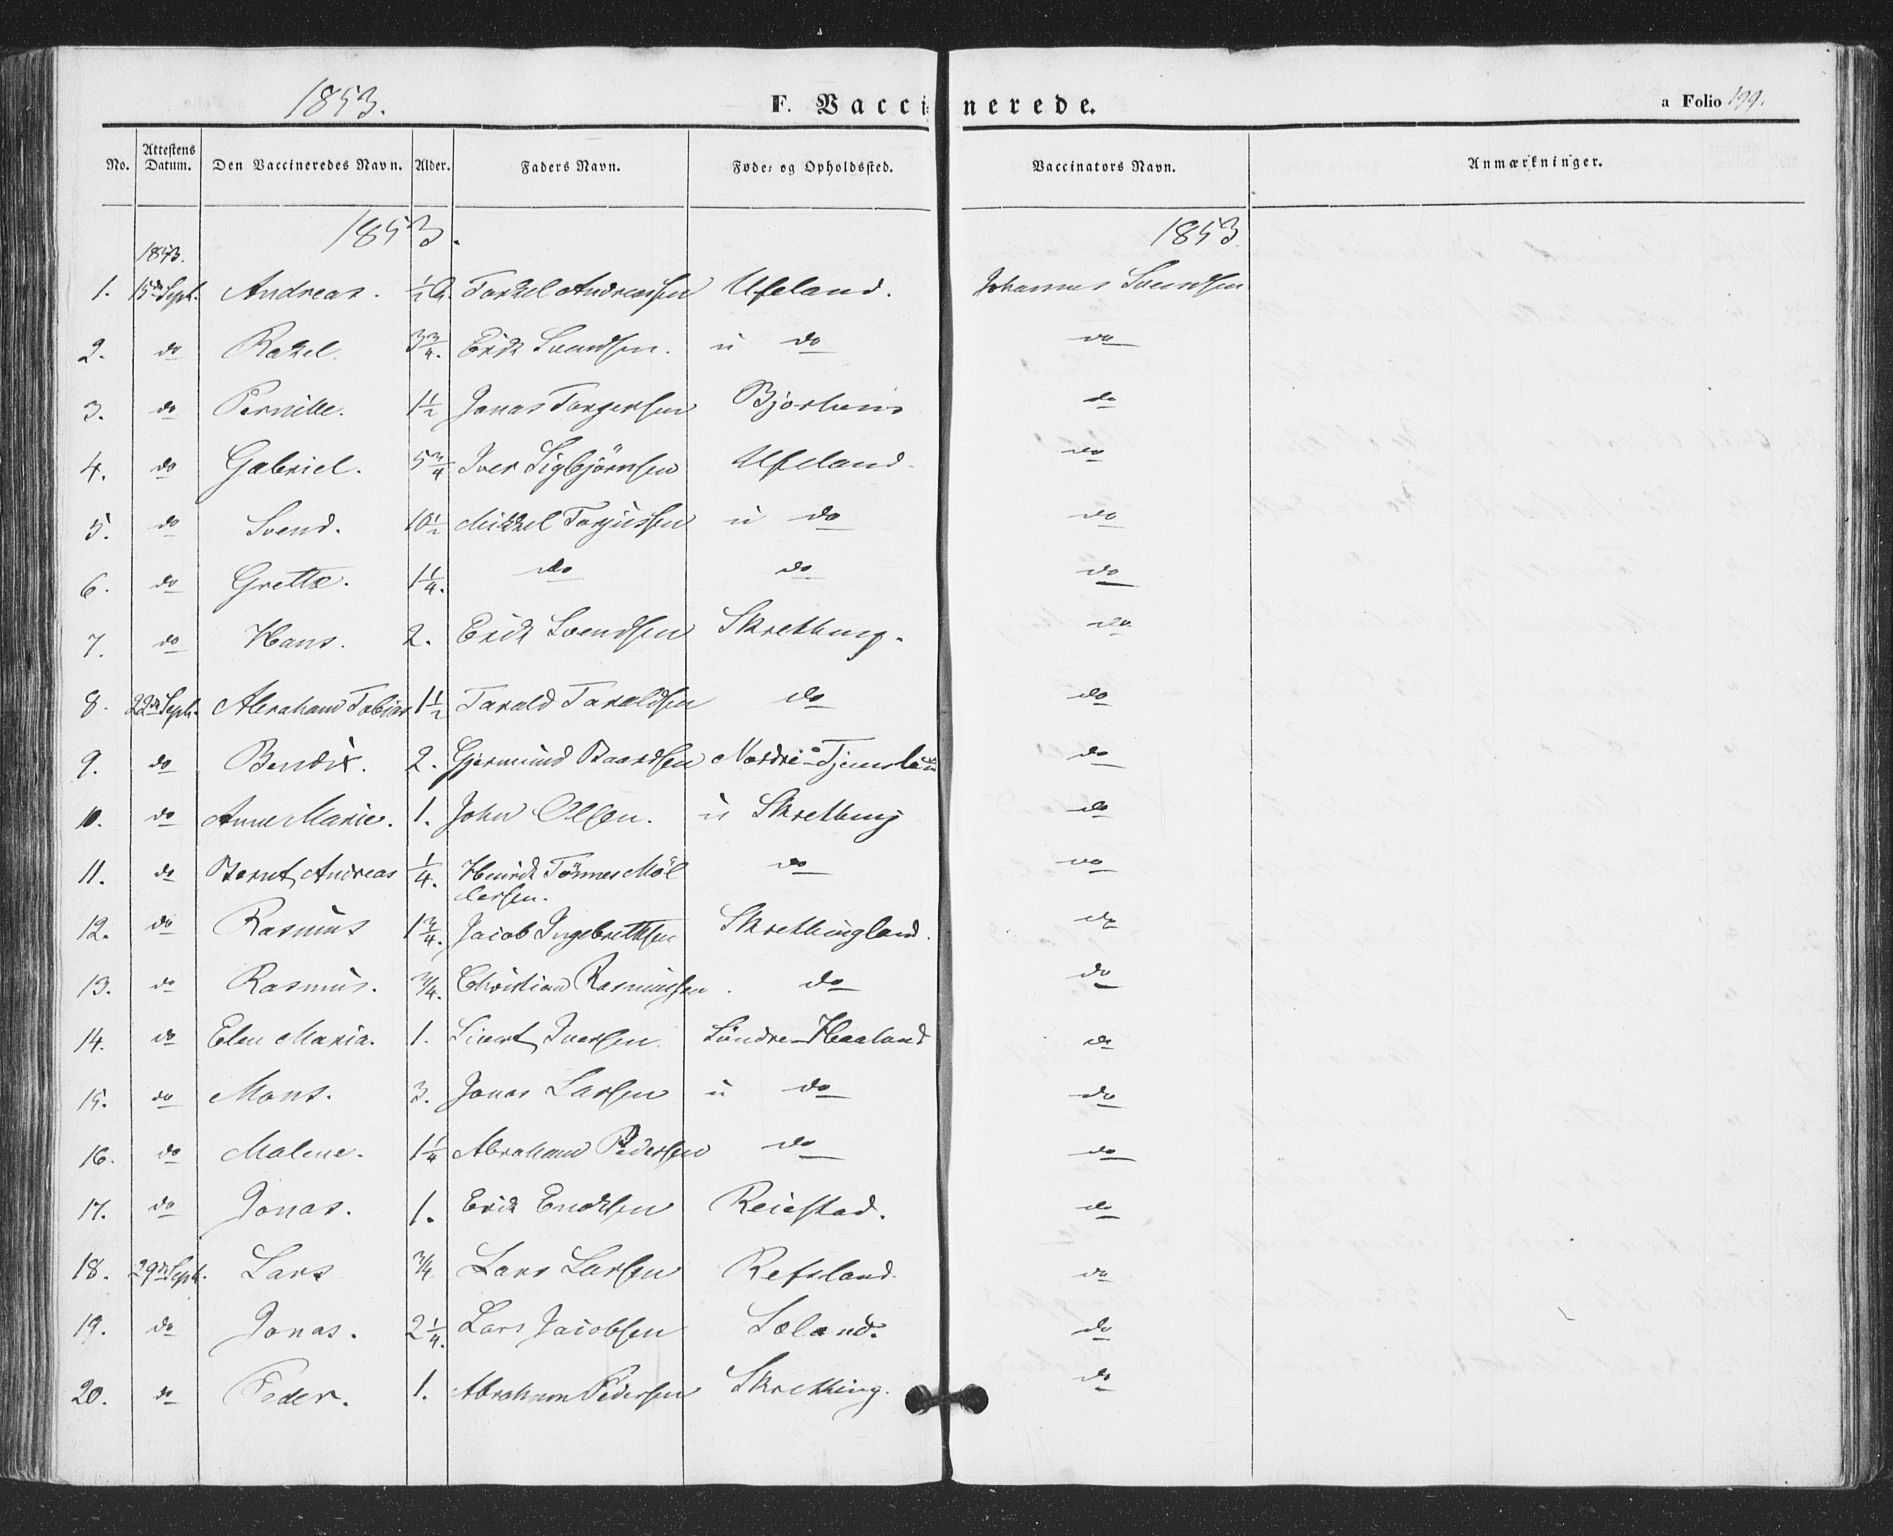 1853. F. Vaccinerede. a Folio 199.
No. Attestens Datum. Den Vaccineredes Navn. Alder. Faders Navn. Føde- og Opholdssted. Vaccinators Navn. Anmærkninger.
1853. 1853.
1853.
1. 15de Sept. Andreas. ½ A. Torkel Andreassen Ueland. Johannes Svendsen
2. do Rakel. 3¾. Erik Svendsen. u do do
3. do Pernille. 1½ Jonas Torgersen do
4. do Gabriel. 5¾ Iver Sigbjørnsen Ueland. do
5. do Svend. 10½ Mikkel Torjussen u do do
6. do Grethe. 1¼. do do do
7. do Hans. 2. Erik Svendsen Skretting. do
8. 22de Sept. Abraham Tobias 1½ Tarald Taraldsen do do
9. do Bendix. 2. Gjermund Baardsen Nordre-Tjemsland do
10. do Anne Marie. 1. John Olsen. u Skretting do
11. do Bernt Andreas ¼. Henrik Tønnes Møl do do
lersen.
12. do Rasmus 1¾. Jacob Ingebretsen Skrettingland. do
13. do Rasmus. ¾. Christian Rasmussen. do do
14. do Elen Maria. 1. Sivert Iversen. Søndre-Haaland do
15. do Mons. 3. Jonas Larsen u do do
16. do Malene. 1¼ Abraham Pedersen do do
17. do Jonas. 1. Erik Enoksen Reiestad. do
18. 29de Sept. Lars ¾ Lars Larsen Refsland. do
19. do Jonas. 2¼. Lars Jacobsen Soland. do
20. do Peder. 1. Abraham Pedersen Skretting. do